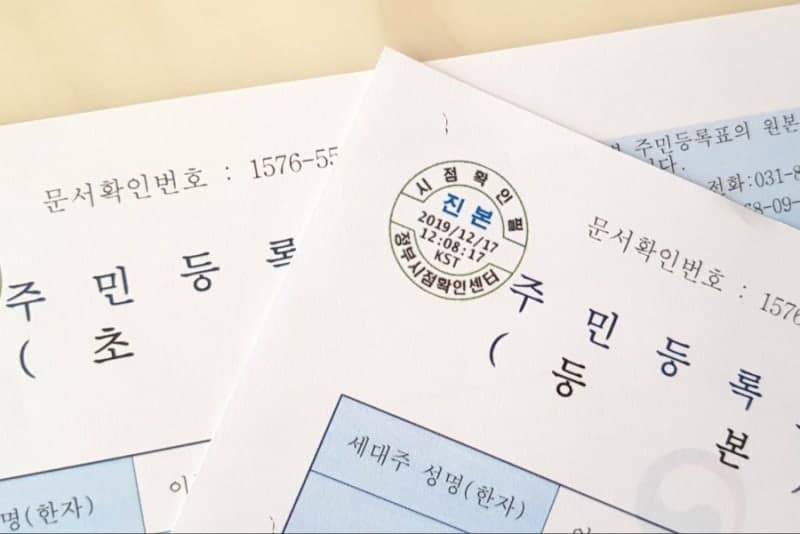 문서확인번호 : 1576-55
주 민 등 록
( 초
명(한자)
주민등록표의 원본
전화:031-8
시점확인필
진 본
2019/12/17
12:08:17
KST
정부시점확인센터
문서확인번호 : 1576
주 민 등 록
( 등 본
세대주 성명(한자)